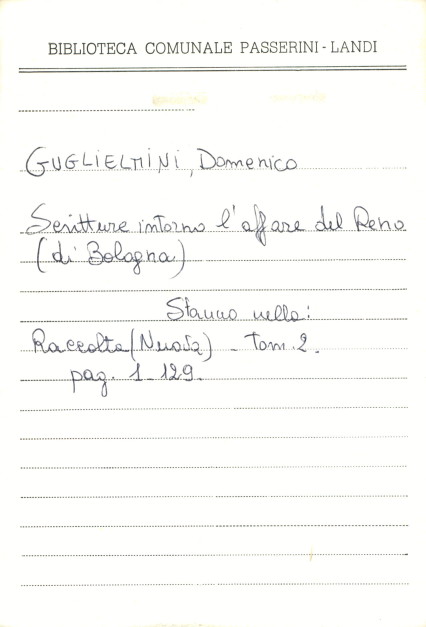 BIBLIOTECA COMUNALE PASSERINI-LANDI
GUGLIELMINI, Domenico
Scritture intorno l'affare del Reno
(di Bologna)
Stanno nella:
Raccolta (Nuova) - Tom. 2.
pag. 1-129.